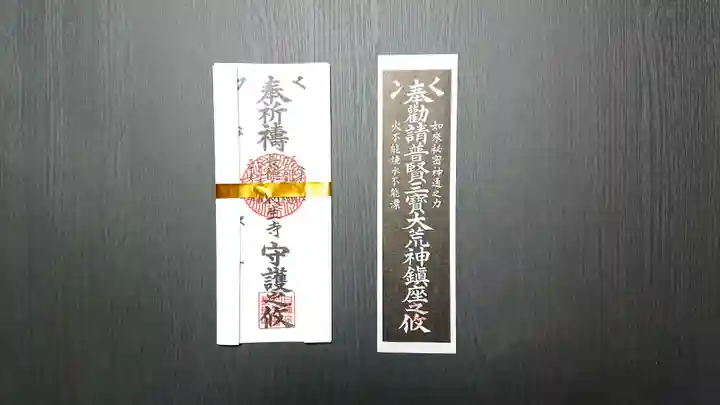 奉祈禱
寺
守護之攸
奉勸請普賢三寶大荒神鎭座之攸
如來秘密神通之力
火不能燒水不能漂